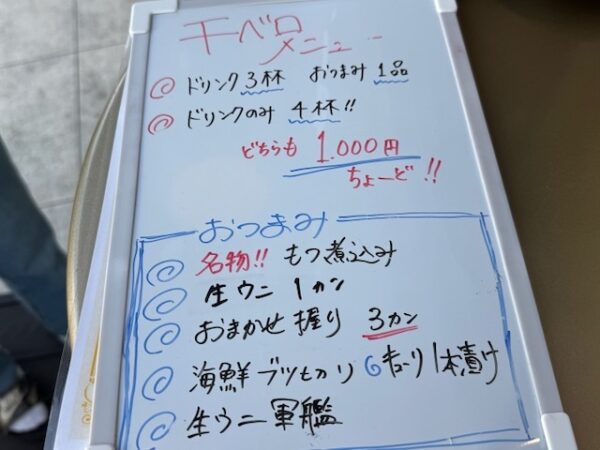 千ベロメニュー
ドリンク3杯 おつまみ1品
ドリンクのみ 4杯!!
どちらも 1.000円
ちょーど!!
おつまみ
名物!! もつ煮込み
生ウニ 1カン
おまかせ握り 3カン
海鮮ブツセカリ キューリ1本漬け
生ウニ軍艦